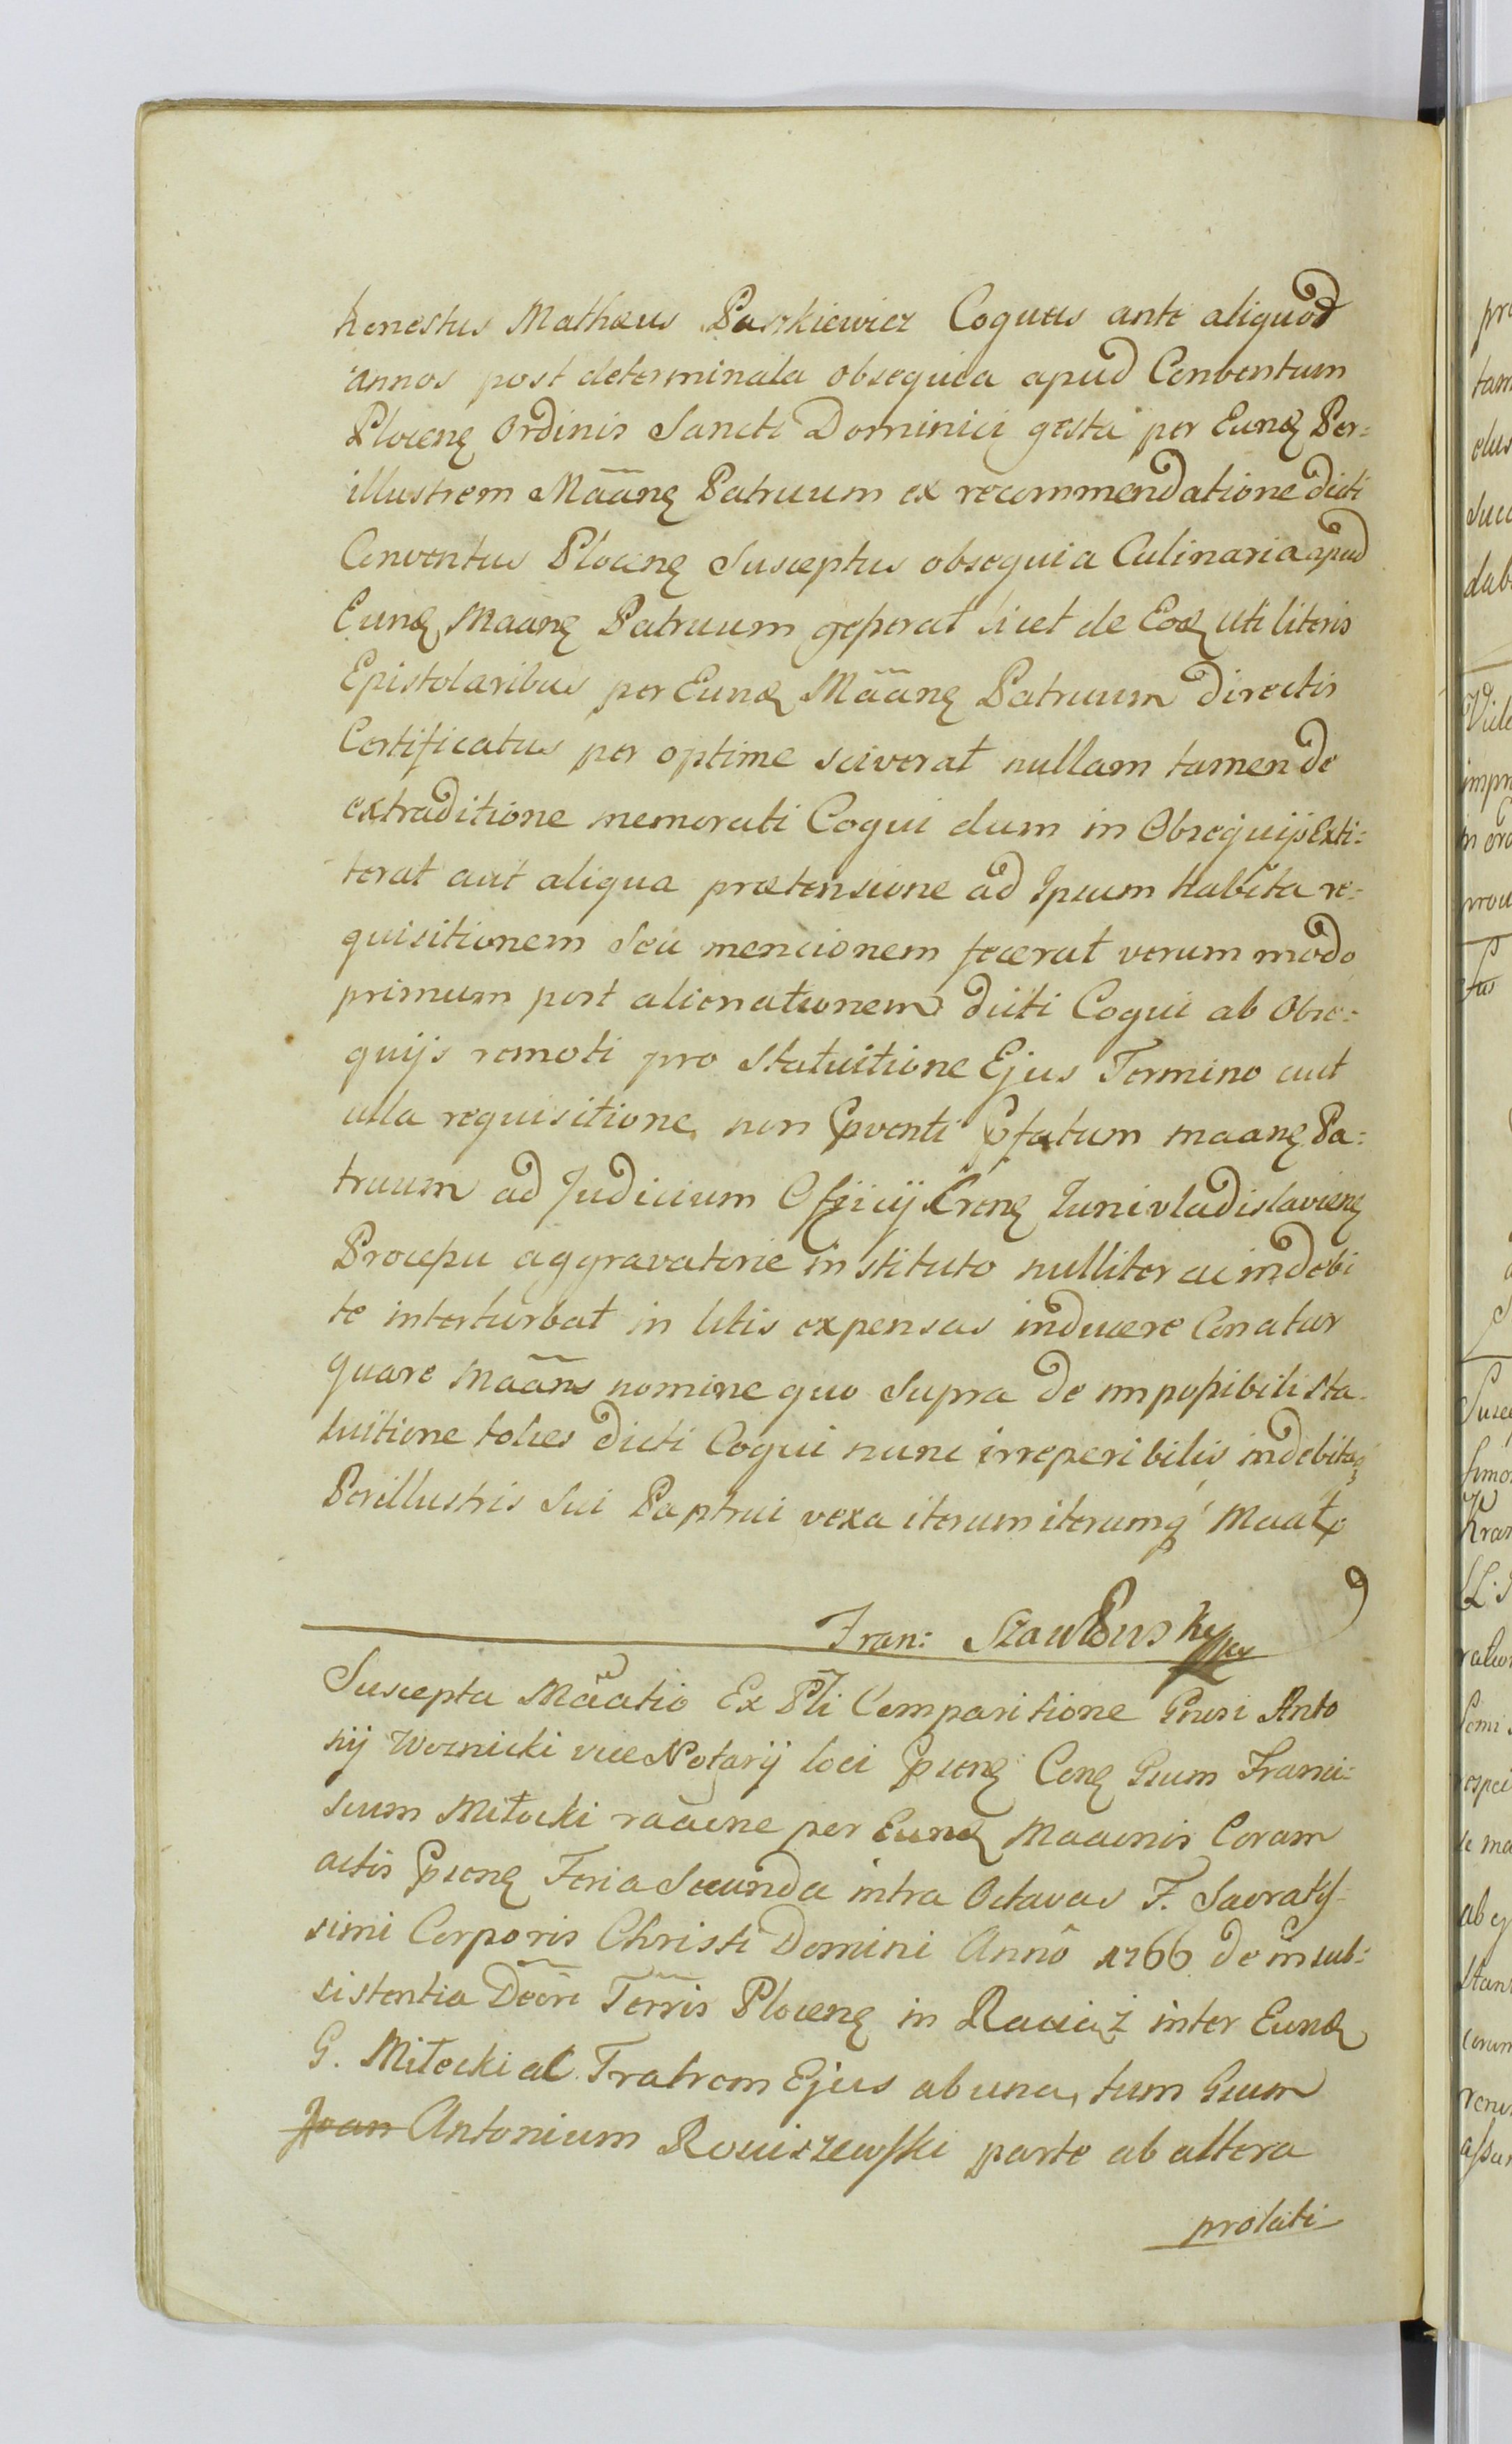 honestus Mathæus Paszkiewicz Coquus ante aliquod
annos post determinata obsequia apud Conventum
Plocenę Ordinis Sancti Dominici gesta per Eundę Per=
illustrem Mãanę Patruum ex recommendatione dicti
Conventus Plocenę Susceptus obsequia Culinaria apud
Eundę Maanę Patruum gesserat licet de Eodę uti literis
Epistolaribus per Eundę Mãanę Patruum directis
Certificatus per optime sciverat nullam tamen de
extraditione memorati Coqui dum in Obsequijs Exti=
terat aut aliqua prætensione ad Ipsum habita re=
quisitionem Seu mencionem fecerat verum modo
primum post alienationem dicti Coqui ab Obse=
quijs remoti pro Statuitione Ejus Termino aut
ulla requisitione non pventi pfatum maanę Pa=
truum ad Judicium Officij Crenę Junivladislavienę
Processu aggravatorie instituto nulliter ac indebi
te interturbat in litis expensas inducere Conatur
quare Mããns nomine quo Supra de impossibili Sta=
tuitione toties dicti Coqui nunc irreperibilis indebitaq
Perillustris Sui Paptrui vexa iterum iterumq Maatr
Fran: Szawłowsky
Suscepta Mããatio Ex Pli Comparitione Gnosi Anto
nij Woznicki vice Notarij loci psenę Cenę Gsum Franci=
scum Miłocki raaone per Eundę Maaonis Coram
actis psenę Feria Secunda intra Octavas F. Sacratis=
simi Corporis Christi Domini Anno 1766 de insub=
sistentia Decri Terris Plocenę in Raciąż inter Eundę
G. Miłocki ac Fratrem Ejus ab una, tum Gsum
Joan Antonium Rosciszewski parte ab altera
prolati